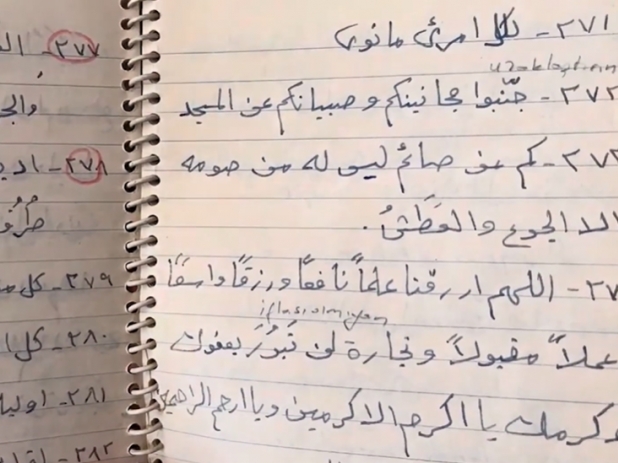 ٢٧١ - لكل امرئ ما نوى
uzaklaştırın
٢٧٢ - جنّبوا مجانينكم وصبيانكم عن المسجد
٢٧٣ - كم من صائم ليس له من صومه
الا الجوع والعَطَشُ .
٢٧ - اللهم ارزقنا علماً نافعًا ورزقًا واسعًا
iflas olmayan
عملاً مقبولاً وتجارة لن تَبُورَ بعفوك
وكرمك يا اكرم الاكرمين ويا ارحم الراحمين
٢٧٧ - ال
والج
٢٧٨ - اد
٢٧٩ - كل م
٢٨٠ - كل ا
٢٨١ - اوليا
٢٨٢ -